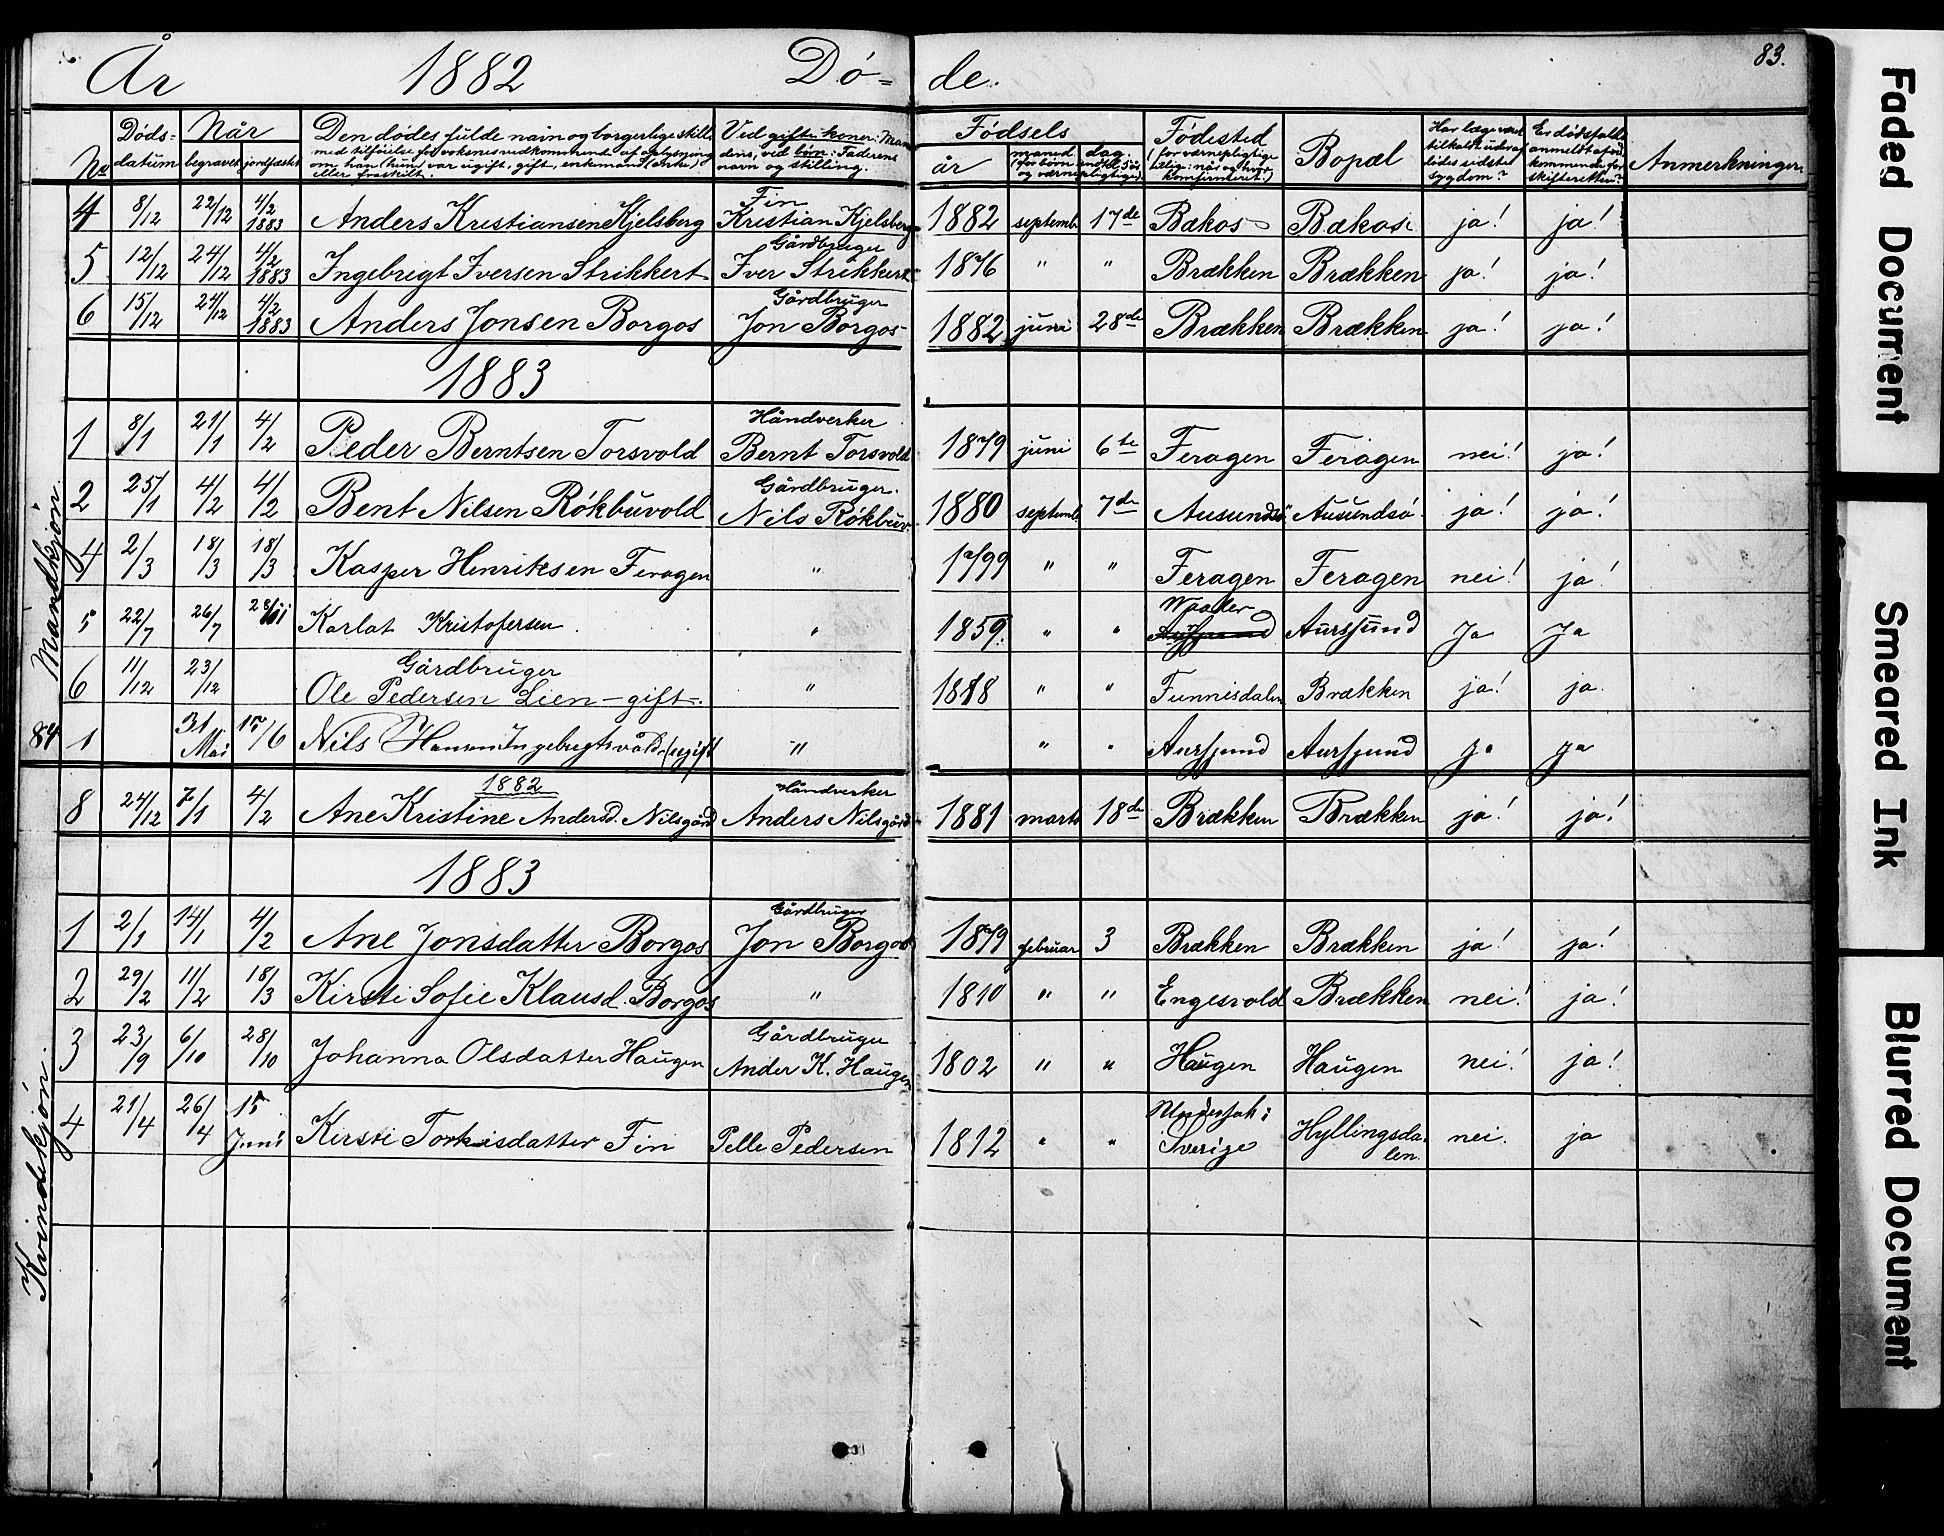 År 1882 Dø= de. 83.
No Døds= datum Når begravet jordfæstet Den dødes fulde navn og borgerlige stilling Ved gifte koner: Man dens, ved børn: Faderens navn og stilling. Fødsels år maned dag. Fødested Bopæl Anmerkninger.
Mandkjön.
4 8/12 22/12 4/2 1883 Anders Kristiansen Kjelsberg Fin Kristian Kjelsberg 1882 septemb. 17de Bækos Bækos ja! ja!
5 12/12 24/12 4/2 1883 Ingebrigt Iversen Strikkert Gårdbruger Iver Strikkert 1876 " " Brækken Brækken ja! ja!
6 15/12 24/12 4/2 1883 Anders Jonsen Borgos Gårdbruger Jon Borgos 1882 juni 28de Brækken Brækken ja! ja!
1883
1 8/1 21/1 4/2 Peder Berntsen Torsvold Håndverker Bernt Torsvold 1879 juni 6te Feragen Feragen nei! ja!
2 25/1 4/2 4/2 Bent Nilsen Røkbuvold Gårdbruger. Nils Røkbuv. 1880 septemb. 7de Ausundsø Ausundsø ja! ja!
4 2/3 18/3 18/3 Kasper Henriksen Feragen " 1799 " " Feragen Feragen nei! ja!
5 22/7 26/7 Karlat Kristofersen. " 1859. " " Aursjund Ja Ja
6 11/12 23/12 Gårdbruger Ole Pedersen Lien - gift. " 1818 " " Funnisdalen Brækken ja! ja.
84 1 31 Mai 15/6 Nils Hansen Ingebrigtsvold (ugift " " " Aursjund Aursjund ja ja
1882
8 24/12 7/1 4/2 Ane Kristine Andersd. Nilsgård Håndverker Anders Nilsgård 1881 marts 18de Brækken Brækken ja! ja!
1883
Kvindekjön.
1 2/1 14/1 4/2 Ane Jonsdatter Borgos Gårdbruger Jon Borgos 1879 februar 3 Brækken Brækken ja! ja!
2 29/2 11/2 18/3 Kirsti Sofie Klausd. Borgos " 1810 " " Engesvold Brækken nei! ja!
3 23/9 6/10 28/10 Johanna Olsdatter Haugen Gårdbruger Ander K. Haugen 1802 " " Haugen Haugen nei! ja!
4 21/4 26/4 15 Juni Kirsti Torkisdatter Fin Pelle Pedersen 1812 " " i Sverige Hyllingsda- len. nei. ja
Faded Document
Smeared Ink
Blurred Document